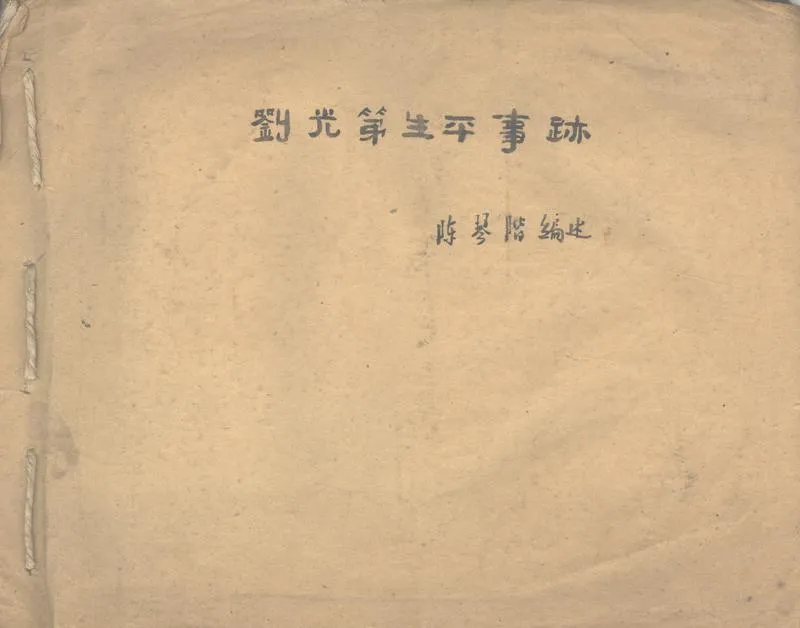 劉光第生平事跡
陈琴階編述